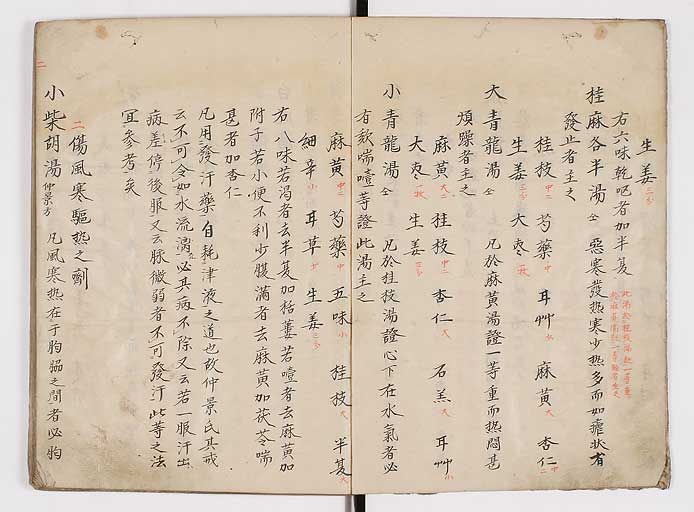 生姜三分
右六味乾呕者加半夏
桂麻各半湯仝 惡寒發热寒少热多而如瘧狀者
發止者主之
桂枝中二 芍藥中 耳艸少 麻黄大 杏仁中二
生姜三分 大枣一枚
大青龍湯仝 凡於麻黄湯證一等重而热悶甚
煩躁者主之
麻黄大二 桂枝中二 杏仁大 石羔大 耳艸小
大枣一枚 生姜三分
小青龍湯仝 凡於桂枝湯證心下在水氣者必
有欬喘噎等證此湯主之
麻黄中二 芍藥中 五味小 桂枝大 半夏大
細辛小 耳草少 生姜三分
右八味若渴者去半夏加栝蔞若噎者去麻黄加
附子若小便不利少腹滿者去麻黄加茯苓喘
甚者加杏仁
凡用發汗藥自耗津液之道也故仲景氏其戒
云不可令如水流漓必其病不除又云若一服汗出
病差停後服又云脉微弱者不可發汗此等之法
冝参考矣
二傷風寒驅热之劑
小柴胡湯仲景方 凡風寒热在于胸脇之間者必胸
二